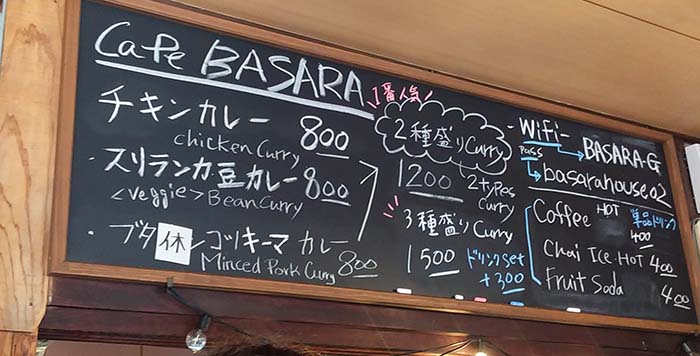 Cafe BASARA
チキンカレー 800
chicken curry
・スリランカ豆カレー 800
<veggie> Bean Curry
・ブタ 休 ンゴリキーマ カレー
Minced Pork Curry 800
1番人気
2種盛りCurry
1200 2types curry
3種盛りCurry
1500 ドリンクset +300
・Wifi- BASARA-G
pass basarahouse02
Coffee HOT 単品ドリンク 400
Chai ICE・HOT 400
Fruit Soda 400